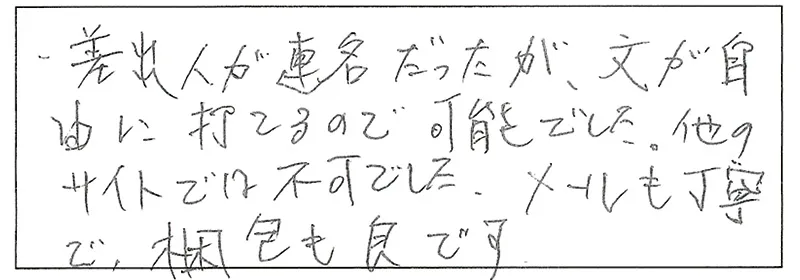 ・差出人が連名だったが、文が自
由に打てるので可能でした。他の
サイトでは不可でした。メールも丁寧
で、梱包も良です